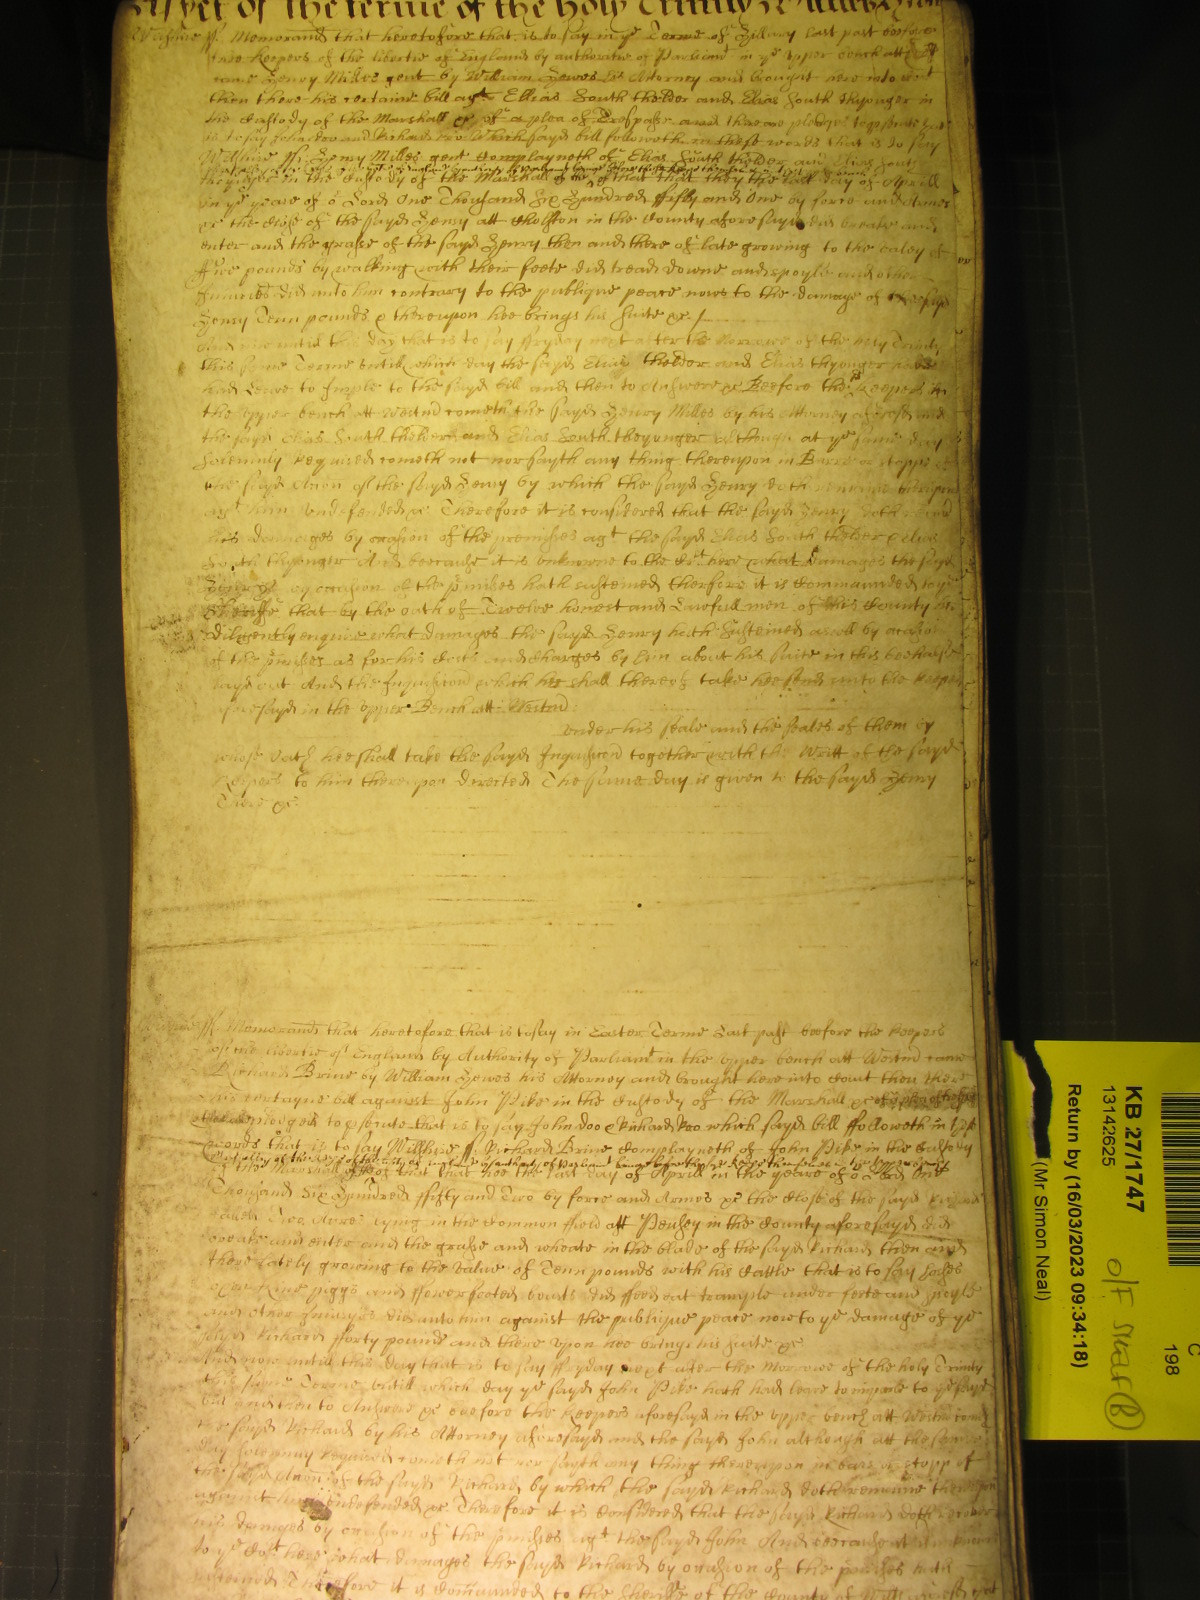 As yet of the terme of the holy Trinity
Memorand that heretofore that is to say in ye Terme of Hillary last past beefore
the Keepers of the libertie of England by authoritie of Parliamt in ye upper bench att
came Henry Milles gent by William Hewes his Attorney and brought here into
then there his certaine bill agt Ellias South thelder and Elias South thyonger in
the Custody of the Marshall &c of a plea of Trespasse and there are pledges to prosecute
is to say John doo and Richard roo Which sayd bill followeth in these words that is to say
Wiltshire ss Henry Milles gent Complayneth of Elias South thelder and Elias South
thyonger in the Custody of the Marshall of that that they the last day of Aprill
in ye yeare of or Lord One Thousand Six Hundred fifty and One by force and Armes
&c the close of the sayd Henry att in the County aforesayd did breake and
enter and the grasse of the sayd Henry then and there of late growing to the valey of
five pounds by walking with their feete did tread downe and spoyle and other
Injuries did unto him contrary to the publique peace now to the damage of the sayd
Henry Tenn pounds & thereupon hee brings his suite &c
And now untill this day that is to say ffryday next after the Morrowe of the holy Trinity
this same Terme untill which day the sayd Elias thelder and Elias thyonger
had Leave to Imple to the sayd bill and then to Answere &c Beefore the Keepers in
the upper bench att Westm cometh the sayd Henry Milles by his Attorney aforesd and
the sayd Elias South thelder and Elias South theyonger although at ye same day
solemnly Required cometh not nor sayth any thing thereupon in Barre or stoppe
the sayd Accon of the sayd Henry by which the sayd Henry doth remaine thereupon
agt him undefended &c Therefore it is considered that the sayd Henry doth recover
his damages by ocasion of the premisses agt the sayd Elias South thelder & Elias
South thyonger And beecause it is unknowne to the Crt here what damages the sayd
Henry by occasion of the pmisses hath susteined therfore it is commaunded to ye
Sheriffe that by the oath of Twelve honest and Lawfull men of his County hee
diligently enquire what damages the sayd Henry hath susteined aswell by ocasion
of the pmisses as for his Costs and Charges by him about his suite in this beehalfe
layd out And the Inquisicon which hee shall thereof take hee send unto the Keeprs
aforesayd in the upper Bench att Westm
under his seale and the seales of them by
whose oath hee shall take the sayd Inquisicon together with the Writt of the sayd
Keepers to him thereupon directed The same day is given to the sayd Henry
There &c
ss Memorand that heretofore that is to say in Easter Terme Last past beefore the Keepers
of the libertie of England by Authority of Parliamt in the upper bench att Westm came
Richard Brine by William Hewes his Attorney and brought here into Court then there
his certayne bill against John Pike in the Custody of the Marshall &c
pledges to psecute that is to say John doo & Richard Roo which sayd bill followeth in these
words that is to say Wiltshire ss Richard Brine Complayneth of John Pike in the Custody
of the Marshall of that that hee the last day of Aprill in the yeare of or Lord One
Thousand Six Hundred fifty and Two by force and Armes &c the Close of the sayd Richard
called Two Acres lying in the Common ffield att Pewsey in the County aforesayd did
breake and enter and the grasse and wheate in the blade of the sayd Richard then and
there lately growing to the value of Tenn pounds with his Cattle that is to say horses
piggs and flowerfooted beasts did ffeed eat trample under feete and spoyle
and other Injuryes did unto him against the publique peace now to ye damage of ye
sayd Richard fforty pounds and there upon hee brings his suite &c
And now untill this day that is to say ffryday next after the Morrowe of the holy Trinity
this same Terme untill which day ye sayd John Pike hath had leave to imple to ye sayd
bill and then to Answere &c beefore the Keepers aforesayd in the upper bench att Westm cometh
the sayd Richard by his Attorney aforesayd and the sayd John although att the same
day solemnly Required cometh not nor sayth any thing thereupon in barr or stopp of
the sayd Accon of the sayd Richard by which the sayd Richard doth remaine thereupon
against him undefended &c Therefore it is Considered that the sayd Richard doth recover
his damages by occasion of the pmisses agt the sayd John And beecause it is unknown
to ye Cort here what damages the sayd Richard by occasion of the pmisses hath
susteined Therefore it is commaunded to the Sheriffe of the County of
KB 27/1747
13142625
Return by (16/03/2023 09:34:18)
(Mr Simon Neal)
C
198